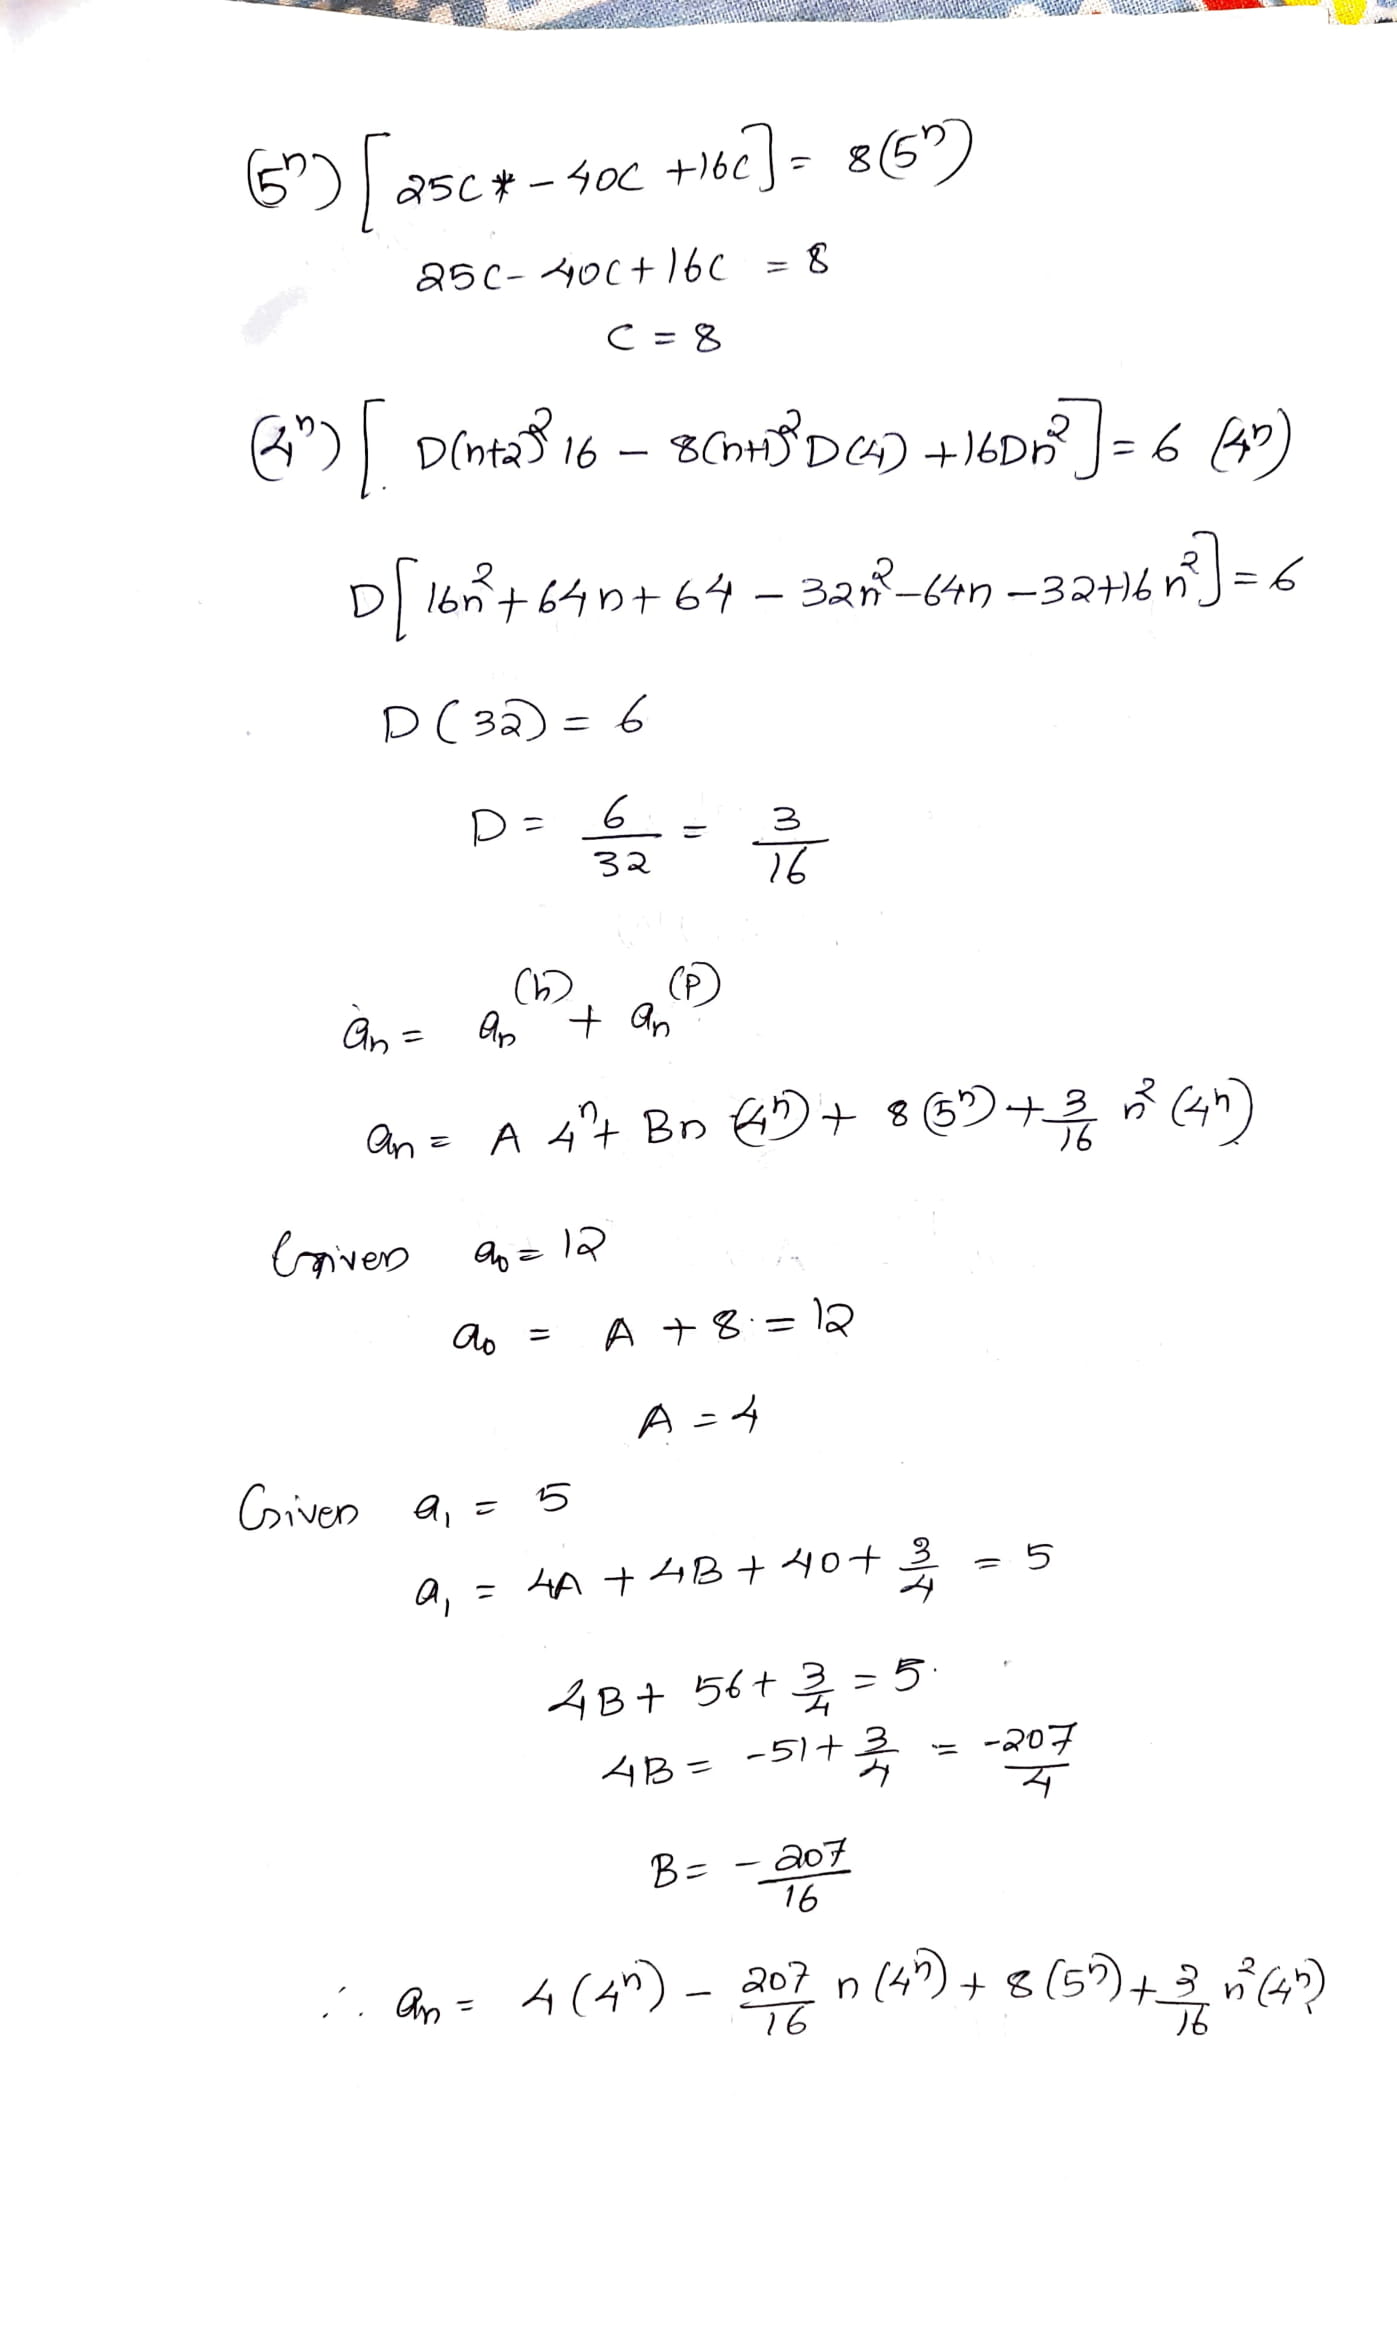 (5ⁿ) [25C* - 40C + 16C] = 8(5ⁿ)
25C - 40C + 16C = 8
C = 8
(4ⁿ) [D(n+2)² 16 - 8(n+1)² D(4) + 16Dn²] = 6 (4ⁿ)
D[16n² + 64n + 64 - 32n² - 64n - 32 + 16n²] = 6
D(32) = 6
D = 6/32 = 3/16
aₙ = aₙ⁽ʰ⁾ + aₙ⁽ᵖ⁾
aₙ = A 4ⁿ + Bn (4ⁿ) + 8(5ⁿ) + 3/16 n² (4ⁿ)
Given a₀ = 12
a₀ = A + 8 = 12
A = 4
Given a₁ = 5
a₁ = 4A + 4B + 40 + 3/4 = 5
4B + 56 + 3/4 = 5
4B = -51 + 3/4 = -207/4
B = -207/16
∴ aₙ = 4(4ⁿ) - 207/16 n(4ⁿ) + 8(5ⁿ) + 3/16 n²(4ⁿ)